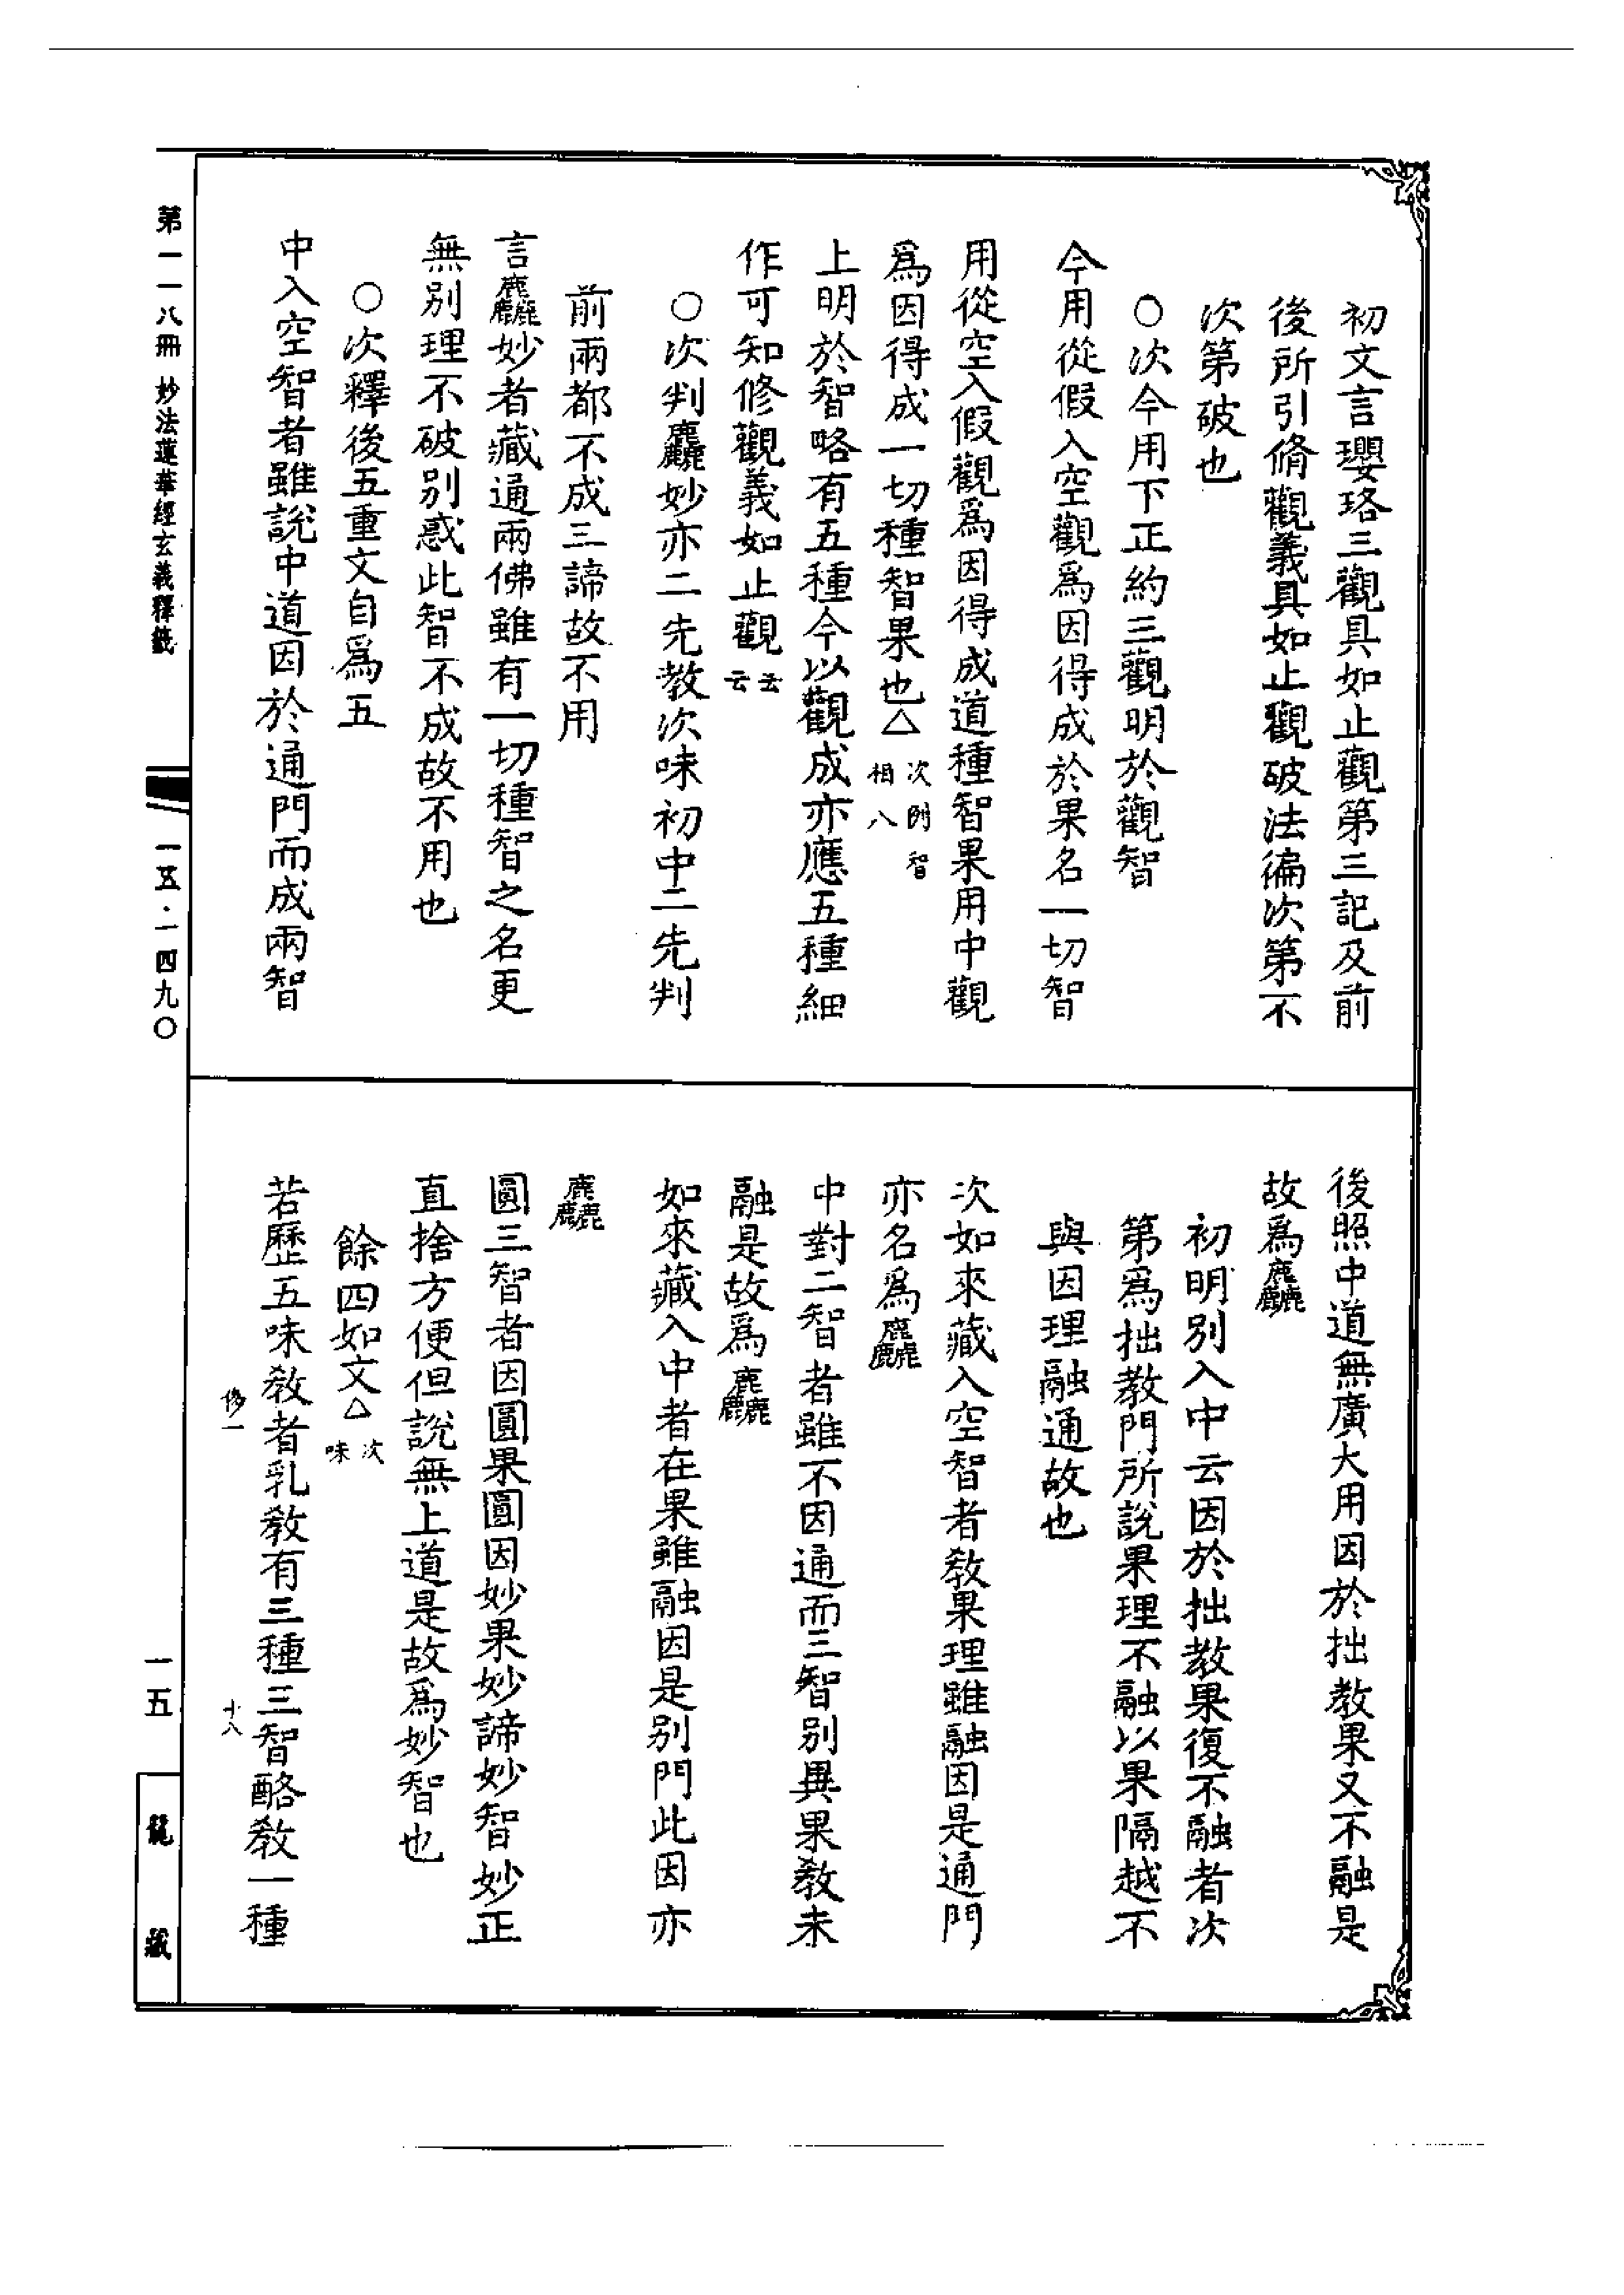 初文言瓔珞三觀具如止觀第三記及前
後所引脩觀義具如止觀破法徧次第不
次第破也
○次今用下正約三觀明於觀智
今用從假入空觀爲因得成於果名一切智
用從空入假觀爲因得成道種智果用中觀
爲因得成一切種智果也△次例智相八
上明於智略有五種今以觀成亦應五種細
作可知修觀義如止觀云云
○次判麤妙亦二先教次味初中二先判
前兩都不成三諦故不用
言麤妙者藏通兩佛雖有一切種智之名更
無別理不破別惑此智不成故不用也
○次釋後五重文自爲五
中入空智者雖說中道因於通門而成兩智
後照中道無廣大用因於拙教果又不融是
故爲麤
初明別入中云因於拙教果復不融者次
第爲拙教門所說果理不融以果隔越不
與因理融通故也
次如來藏入空智者教果理雖融因是通門
亦名爲麤
中對二智者雖不因通而三智別異果教未
融是故爲麤
如來藏入中者在果雖融因是別門此因亦
麤
圓三智者因圓果圓因妙果妙諦妙智妙正
直捨方便但說無上道是故爲妙智也
餘四如文△次味
若歷五味教者乳教有三種三智酪教一種
十八
第一一八冊 妙法蓮華經玄義釋籤
一五·一四九○
一五
龍藏